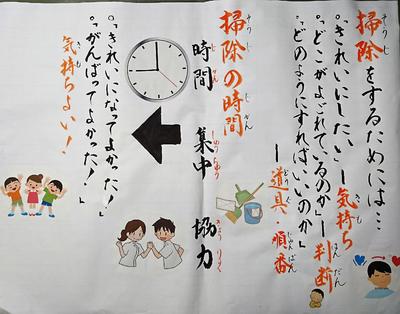 掃除をするためには…
。「きれいにしたい」ー気持ち
。「どこがよごれているのか」ー判断
。「どのようにすればいいのか」
ー道具・順番
掃除の時間
時間 集中 協力
。「きれいになってよかった!。」
。「がんばってよかった!。」
気持ちよい!